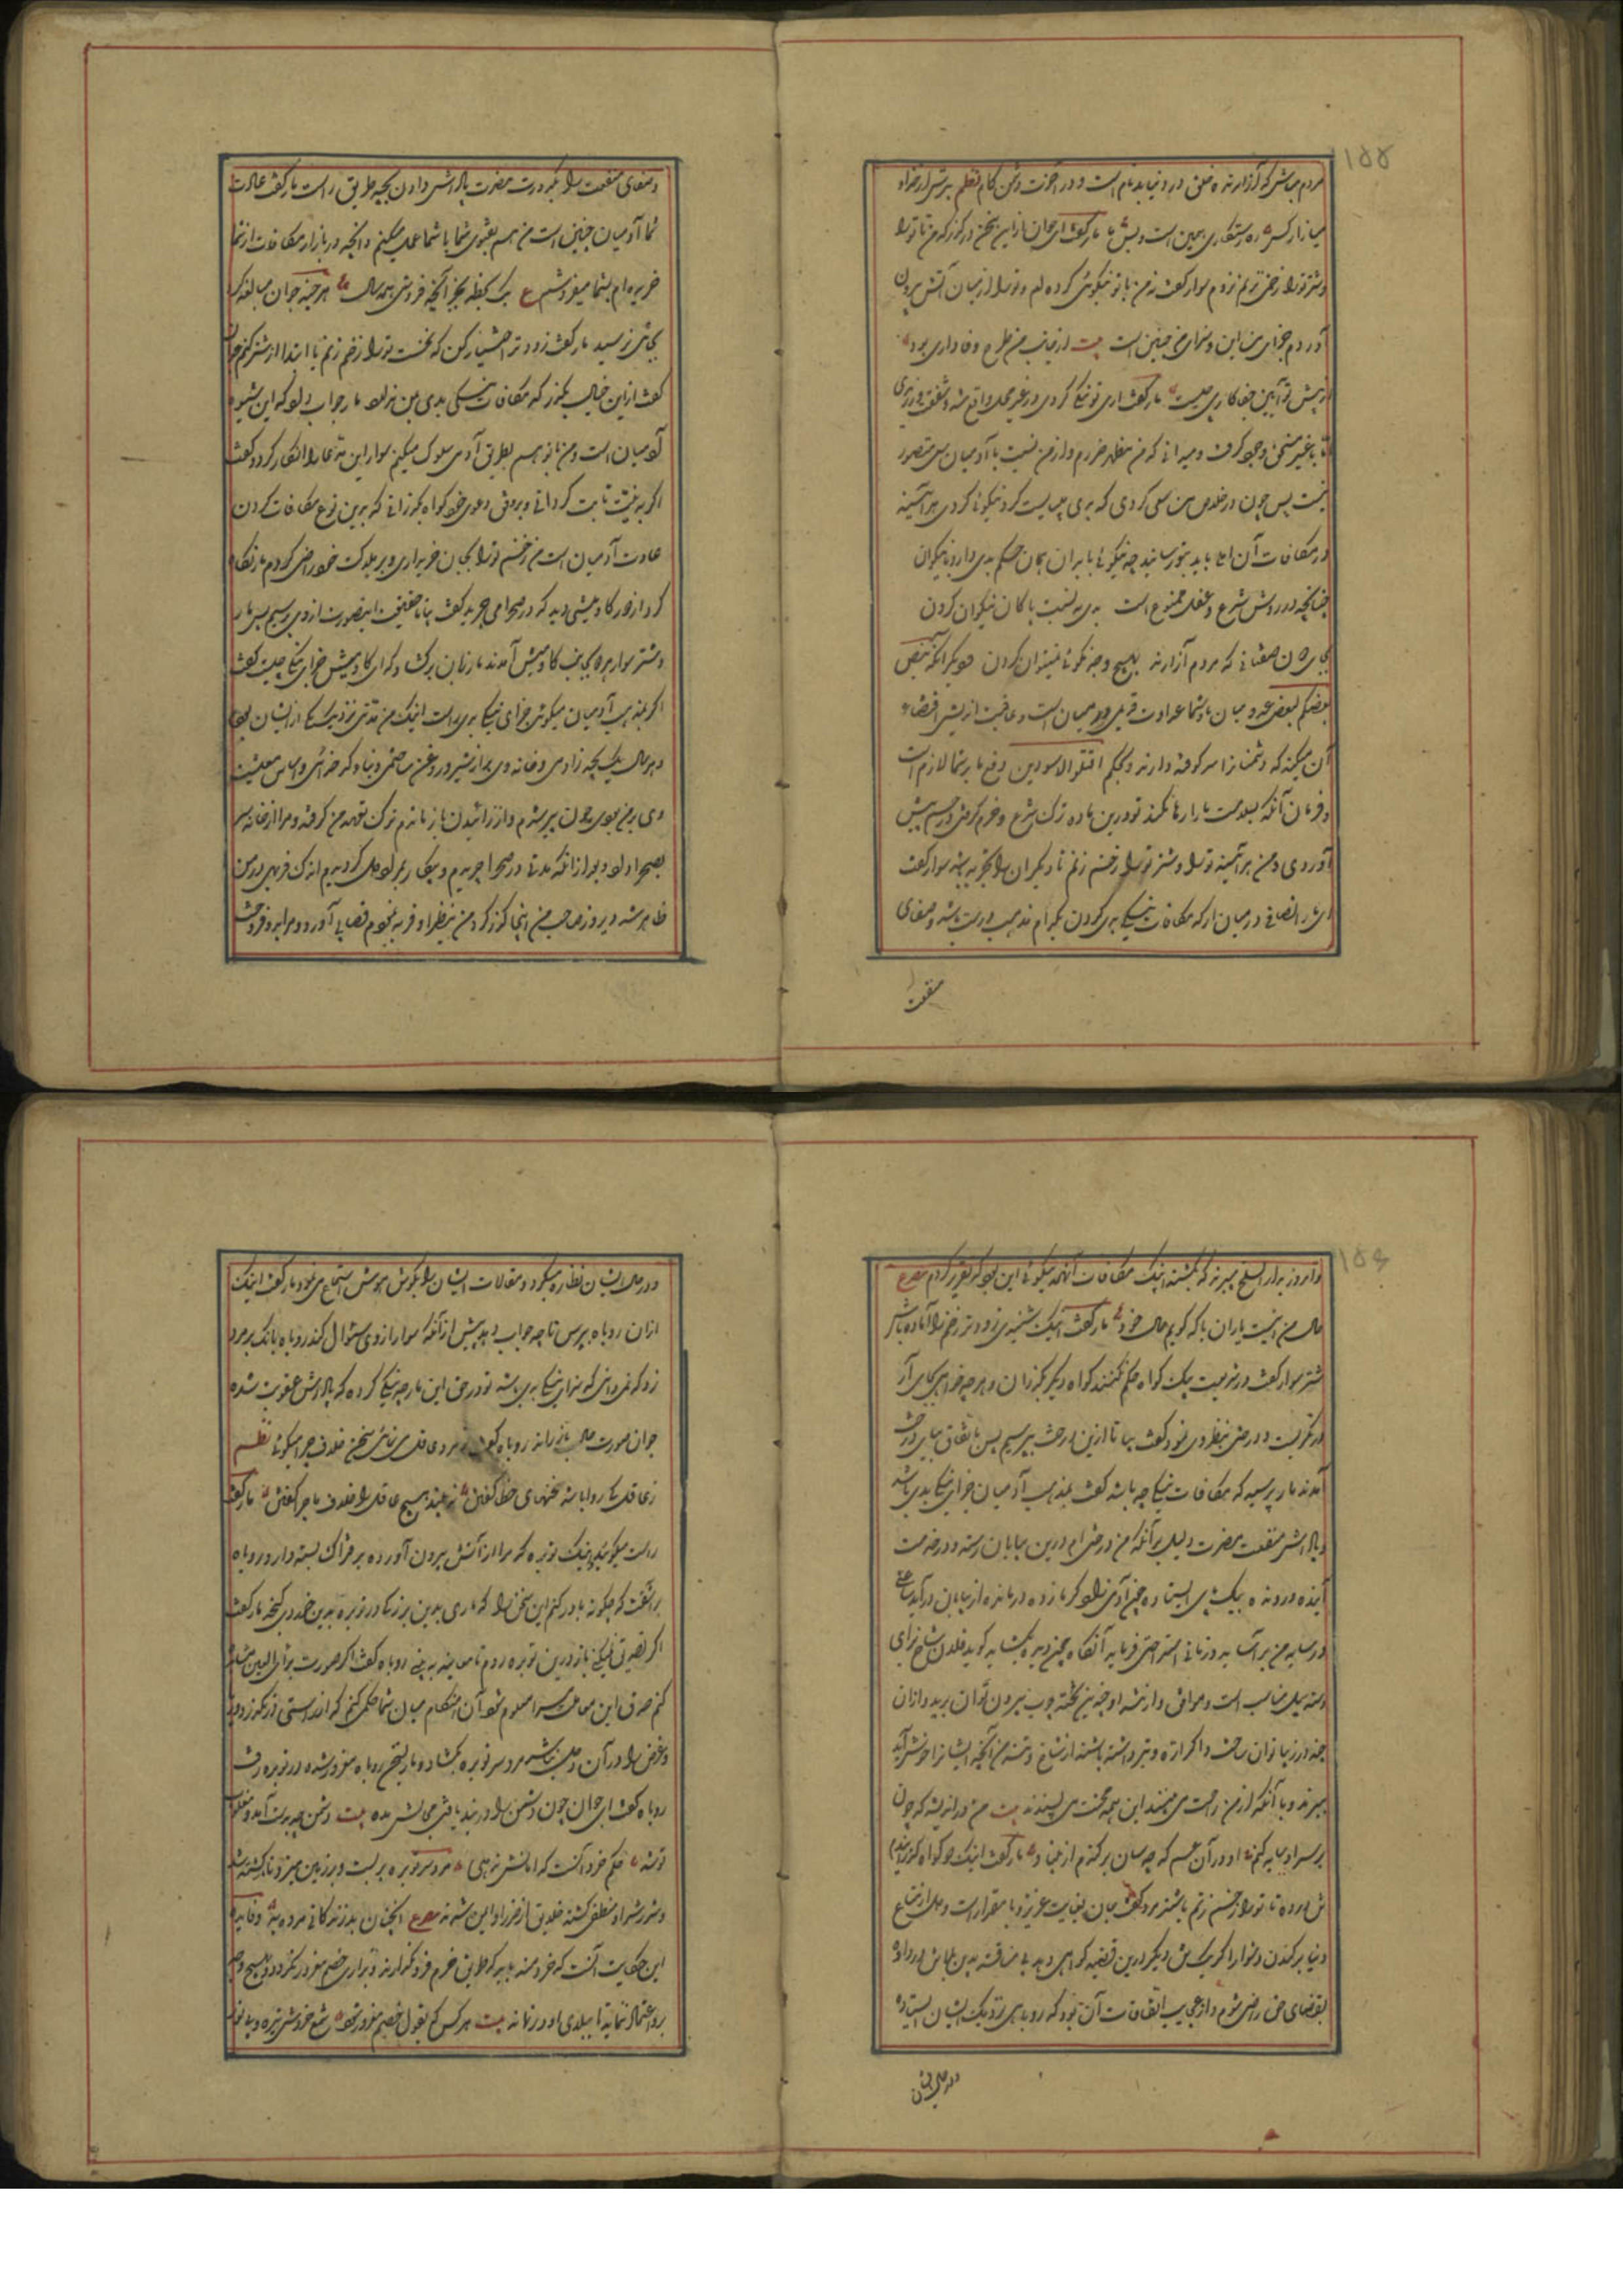 ۱۵۵
مردم مباش که آزارنده خلق در دنیا بدنام است و در آخرت دشمن کام نظم بترس از خدا و
میازار کس ره رستگاری همین است و بس مار گفت ای جوان ازین سخن درگذر که من تا ترا
و شتر ترا زخمی نزنم نروم سوار گفت نه من با تو نیکوئی کرده ام و ترا از میان آتش بیرون
آوردم جزای من این و سزای من چنین است بیت از جانب من طرح وفاداری بود
از پیش تو آیین جفاکاری چیست مار گفت آری تو نیکی کردی و در غیر محل واقع شد و شفقت ورزیدی
اما با غیر مستحق وجود گرفت و میدانی که من مظهر ضررم و از من نسبت با آدمیان متصور
نیست پس چون در خلاص من سعی کردی که بدی میبایست کرد نیکوئی کردی هر آئینه
در مکافات آن المی باید بتو رسانید چه نیکوئی با بدان همان حکم بدی دارد با نیکوان
چنانچه در روش شرع و عقل ممنوع است بدی به نسبت پاکان نیکوان کردن
بجای صفتانی که مردم آزارند بهیچ وجه نکوئی نمیتوان کردن و دیگر آنکه بنص
بعضکم لبعض عدو میان ما و شما عداوت قدیمی در میان است و عاقبت اندیشی اقتضاء
آن میکند که دشمن را سر کوفته دارند و بحکم اقتلوا الاسودین دفع ما بر شما لازم است
و فرمان آنکه بسلامت ما را رها نکنند تو درین ماده ترک شرع و حزم کردی و رحم پیش
آوردی و من هر آئینه ترا و شتر ترا زخم زنم تا دیگران را تجربه باشد سوار گفت
ای مار انصافی در میان آر که مکافات نیکی بدی کردن بکدام مذهب درست باشد و صفای
منفعت
و صفای منفعت را بکدورت مضرت پاداش دادن بچه طریق راست مار گفت عادت
شما آدمیان چنین است من هم بفتوی شما با شما عمل میکنم و آنچه در بازار مکافات از شما
خریده ام بشما میفروشم ع یک لحظه بخر آنچه فروشی همه سال هر چند جوان مبالغه کرد
بجائی نرسید مار گفت زودتر اختیار کن که نخست ترا زخم زنم یا ابتدا از شتر کنم جوان
گفت ازین خیال بگذر که مکافات نیکی بدی مبین نبود مار جواب داد که این شیوه
آدمیان است و من نیز هم بطریق آدمی سلوک میکنم سوار این مدعا را انکار کرد و گفت
اگر به بینت ثابت گردانی و بر وفق دعوی خود گواه گذرانی که بدین نوع مکافات کردن
عادت آدمیان است من زخم ترا بجان خریداری و بر هلاکت خود راضی گردم مار نگاه
کرد از دور گاومیشی دید که در صحرا می چرید گفت بیا تا حقیقت اینصورت از وی پرسیم پس مار
و شتر سوار هر دو بجانب گاومیش آمدند مار زبان برگشاد که ای گاومیش جزای نیکی چیست گفت
اگر بمذهب آدمیان میگوئی جزای نیکی بدی است اینک من مدتی نزدیک یکی از ایشان بودم
و هر سال یک بچه زادمی و خانه وی پر از شیر و روغن ساختمی و بناء کدخدائی و اساس معیشت
وی بر من بود چون پیر شدم و از زائیدن باز ماندم ترک تعهد من گرفته و مرا از خانه سر
بصحرا داد و بعد از آنکه مدتی در صحرا چریدم و بیکار بمراد دل گردیدم اندک فربهی در من
ظاهر شد دیروز صاحب من اینجا گذر کرد من بنظر او فربه نمودم قصابی آورد و مرا بدو فروخت
۱۵۶
و امروز مرا بمسلخ میبرند که بکشند اینک مکافات آنهمه نیکوئی این بود که تقریر کردم مصرع
حال من اینست یاران با که گویم حال خود مار گفت اینک شنیدی زودتر زخم را آماده باش
شتر سوار گفت در شریعت بیک گواه حکم نکنند گواه دیگر بگذران و هر چه خواهی بجای آر
مار نگریست و درختی بنظر وی نمود گفت بیا تا ازین درخت بپرسیم پس باتفاق بپای درخت
آمدند مار پرسید که مکافات نیکی چه باشد گفت بمذهب آدمیان جزای نیکی بدی باشد
و پاداش منفعت مضرت دلیل بر آنکه من درختی ام درین بیابان رسته و در خدمت
آینده و رونده بیک پای ایستاده چون آدمی زاد گرما زده و درمانده از بیابان درآید ساعتی
در سایه من برآساید و زمانی استراحتی فرماید آنگاه چون دیده بگشاید گوید فلان شاخ برای
دسته بیل مناسب است و موافق و از تنه او چندین تخته چوب بیرون توان برید و از آن
چند در زیبا توان ساخت و اگر اره و تبر داشته باشند از شاخ و تنه من آنچه ایشان را خوش آید
میبرند و با آنکه از من راحت می بینند این همه محنت می پسندند بیت من در اندیشه که چون
بر سر او سایه کنم او در آن غم که چه سان برکندم از بنیاد مار گفت اینک دو گواه گذرانیدم
تن در ده تا ترا زخم زنم باشتر مرد گفت جان بغایت عزیز و با مقدار است و دل از متاع
دنیا برکندن دشوار اگر یک کس دیگر درین قضیه گواهی دهد بی مناقشه بدین بلا تن در داده
بقضای حق راضی شوم و از عجایب اتفاقات آن بود که روباهی نزدیک ایشان ایستاده
در حال ایشان
و در حال ایشان نظاره میکرد و مقالات ایشان را بگوش هوش استماع می نمود مار گفت اینک
ازان روباه بپرس تا چه جواب دهد پیش از آنکه سوار از وی سئوال کند روباه بانگ بر مرد
زد که نمیدانی که سزای نیکی بدی باشد تو در حق این مار چه نیکی کرده که پاداش عقوبت شده
جوان صورت حال باز راند روباه گفت تو مرد عاقل می نمائی سخن خلاف چرا میگوئی نظم
ز عاقل کی روا باشد سخنهای خطا گفتن نزیبد هیچ عاقل را خلاف ماجرا گفتن مار گفت
راست میگوید و اینک توبره که مرا از آتش بیرون آورده بر فتراک بسته دارد روباه
برآشفت که چگونه باور کنم این سخن را که ماری بدین بزرگی در توبره بدین خردی گنجد مار گفت
اگر تصدیق نمیکنی باز درین توبره روم تا معاینه به بینی روباه گفت اگر صورت برأی العین مشاهده
کنم و صدق این معامله مرا معلوم شود آن هنگام میان شما حکمی کنم که از راستی درنگذرد
و غرض را در آن دخل نباشد مرد سر توبره بگشاد و مار بسخن روباه مغرور شده در توبره رفت
روباه گفت ای جوان چون دشمن را در بند یافتی مجالش مده بیت دشمن چو بدست آمد و مغلوب
تو شد حکم خرد آنست که امانش ندهی مرد سر توبره بربست و بر زمین میزد تا کشته شد
و شرر شر او منطفی گشته خلایق از ضرر او ایمن شدند مصرع آنچنان بد زندگانی مرده به و فایده
این حکایت آنست که خردمند باید که طریق حزم فرو نگذارد و بزاری خصم مغرور نگردد و بهیچ وجه
برو اعتماد ننماید تا ببلای او در نماند بیت هر کس که بقول خصم مغرور شود شمع خردش تیره و بی نور شود